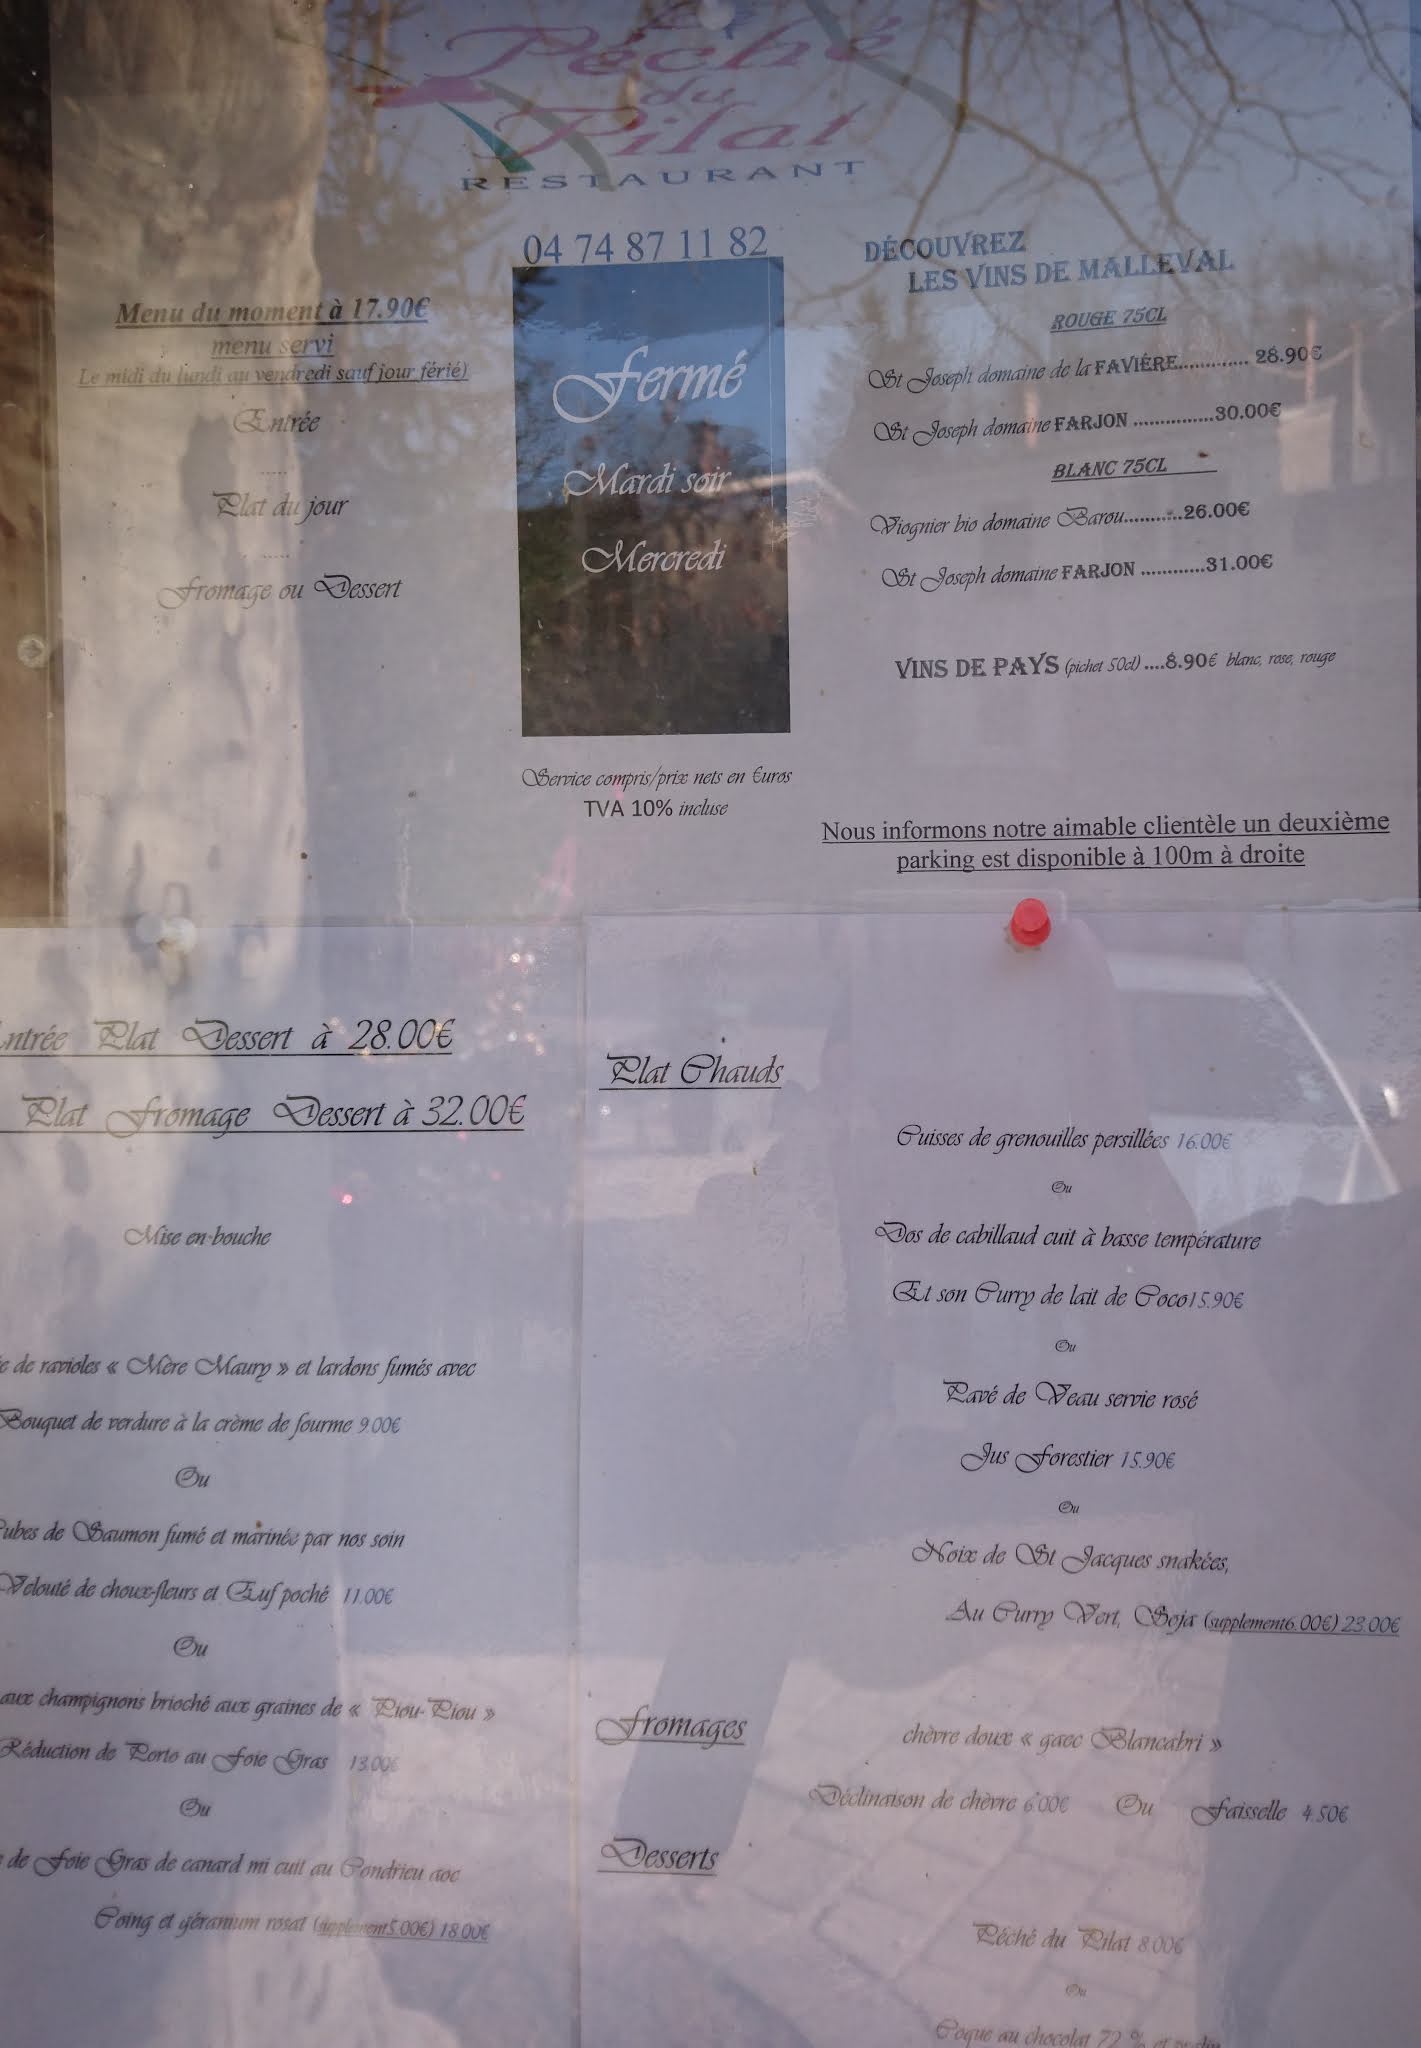 Le
Péché
du
Pilat
RESTAURANT
04 74 87 11 82
Menu du moment à 17.90€
menu servi
Le midi du lundi au vendredi sauf jour férié)
Entrée
.....
Plat du jour
.....
Fromage ou Dessert
Fermé
Mardi soir
Mercredi
Service compris/prix nets en €uros
TVA 10% incluse
DÉCOUVREZ
LES VINS DE MALLEVAL
ROUGE 75CL
St Joseph domaine de la FAVIÉRE............ 28.90€
St Joseph domaine FARJON ...............30.00€
BLANC 75CL
Viognier bio domaine Barou...........26.00€
St Joseph domaine FARJON ............31.00€
VINS DE PAYS (pichet 50cl) ....8.90€ blanc, rose, rouge
Nous informons notre aimable clientèle un deuxième
parking est disponible à 100m à droite
Plat Dessert à 28.00€
Plat Fromage Dessert à 32.00€
Mise en-bouche
de ravioles « Mère Maury » et lardons fumés avec
Bouquet de verdure à la crème de fourme 9.00€
Ou
de Saumon fumé et marinée par nos soin
Velouté de choux-fleurs et Œuf poché 11.00€
Ou
aux champignons brioché aux graines de « Piou-Piou »
Réduction de Porto au Foie Gras 13.00€
Ou
de Foie Gras de canard mi cuit au Condrieu aoc
Coing et géranium rosat (supplement5.00€) 18.00€
Plat Chauds
Cuisses de grenouilles persillées 16.00€
Ou
Dos de cabillaud cuit à basse température
Et son Curry de lait de Coco15.90€
Ou
Pavé de Veau servie rosé
Jus Forestier 15.90€
Ou
Noix de St Jacques snakées,
Au Curry Vert, Soja (supplement6.00€) 23.00€
Fromages
chèvre doux « gaec Blancabri »
Déclinaison de chèvre 6.00€ Ou Faisselle 4.50€
Desserts
Péché du Pilat 8.00€
Ou
Coque au chocolat 72 % et